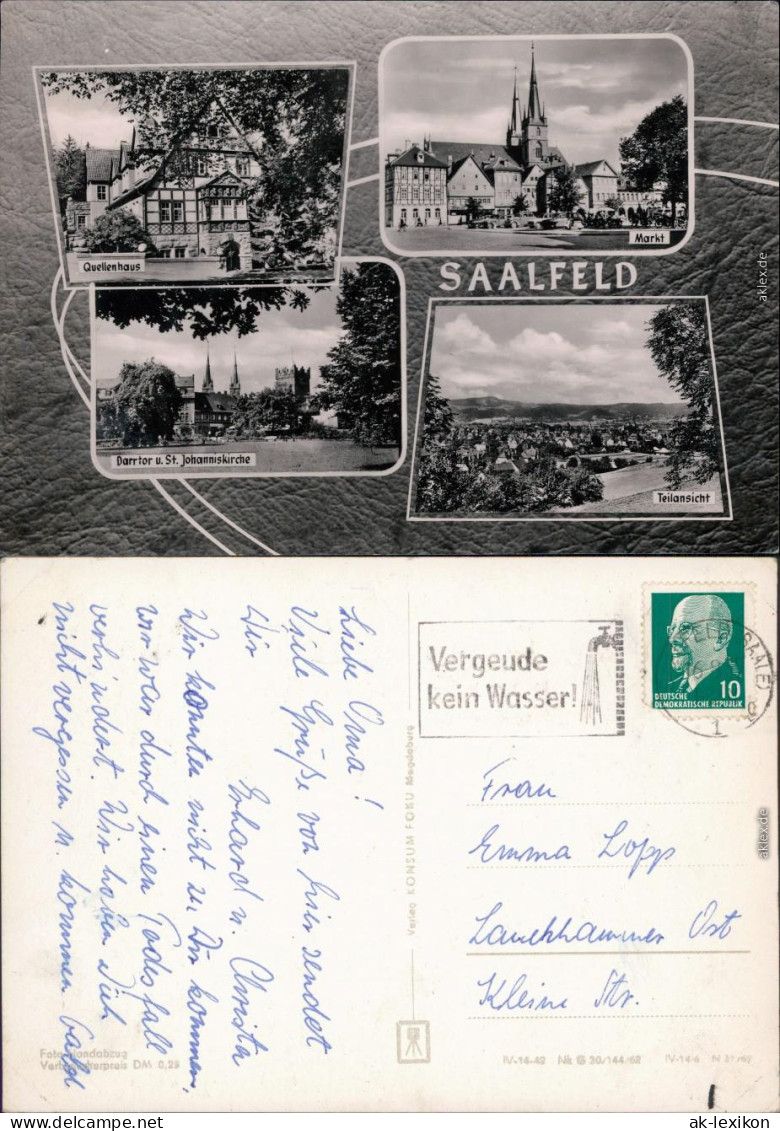 Quellenhaus
Markt
SAALFELD
Darrtor u. St. Johanniskirche
Teilansicht
aklex.de
Liebe Oma!
Viele Grüße von hier sendet
Dir Erhard u. Christa
Wir konnten nicht zu Dir kommen,
wir waren durch einen Todesfall
verhindert. Wir haben Dich
nicht vergessen u. kommen bald
Foto-Handabzug
Verbraucherpreis DM 0,25
Verlag KONSUM FOBU Magdeburg
Vergeude
kein Wasser!
DEUTSCHE
DEMOKRATISCHE REPUBLIK
10
1
Frau
Emma Lopp
Lauchhammer Ost
Kleine Str.
IV-14-42 Nk G 30/144/62 IV-14-6
aklex.de
www.ak-ansichtskarten.de
ak-lexikon